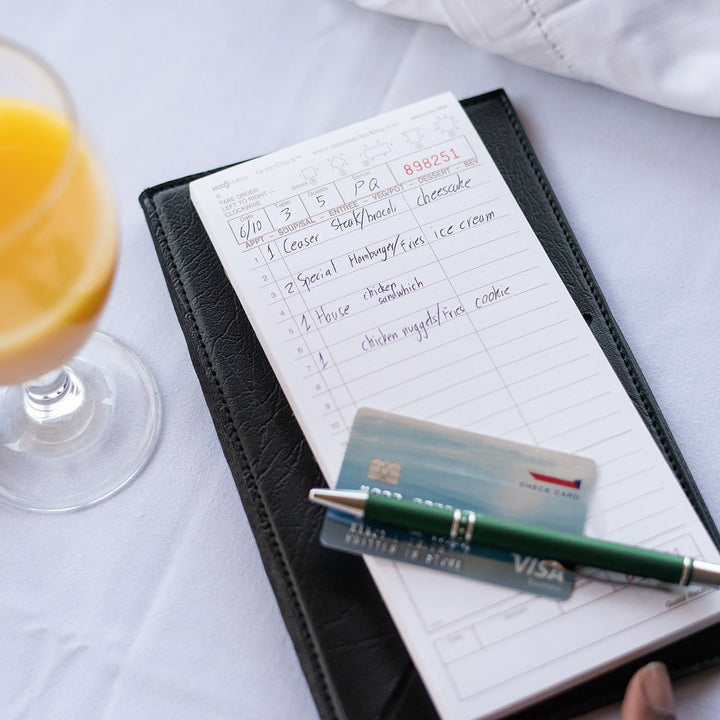 www.nationalchecking.com
TAKE ORDER
LEFT TO RIGHT
CLOCKWISE
Date Table Guests Server
6/10 3 5 PQ 898251
APPT - SOUP/SAL - ENTREE - VEG/POT - DESSERT - BEV
1 1 Ceaser Steak/brocoli cheescake
2
3 2 Special Hamburger/Fries ice cream
4
5 1 House chicken sandwhich
6
7 1 chicken nuggets/Fries cookie
8
9
10
CHECK CARD
VISA